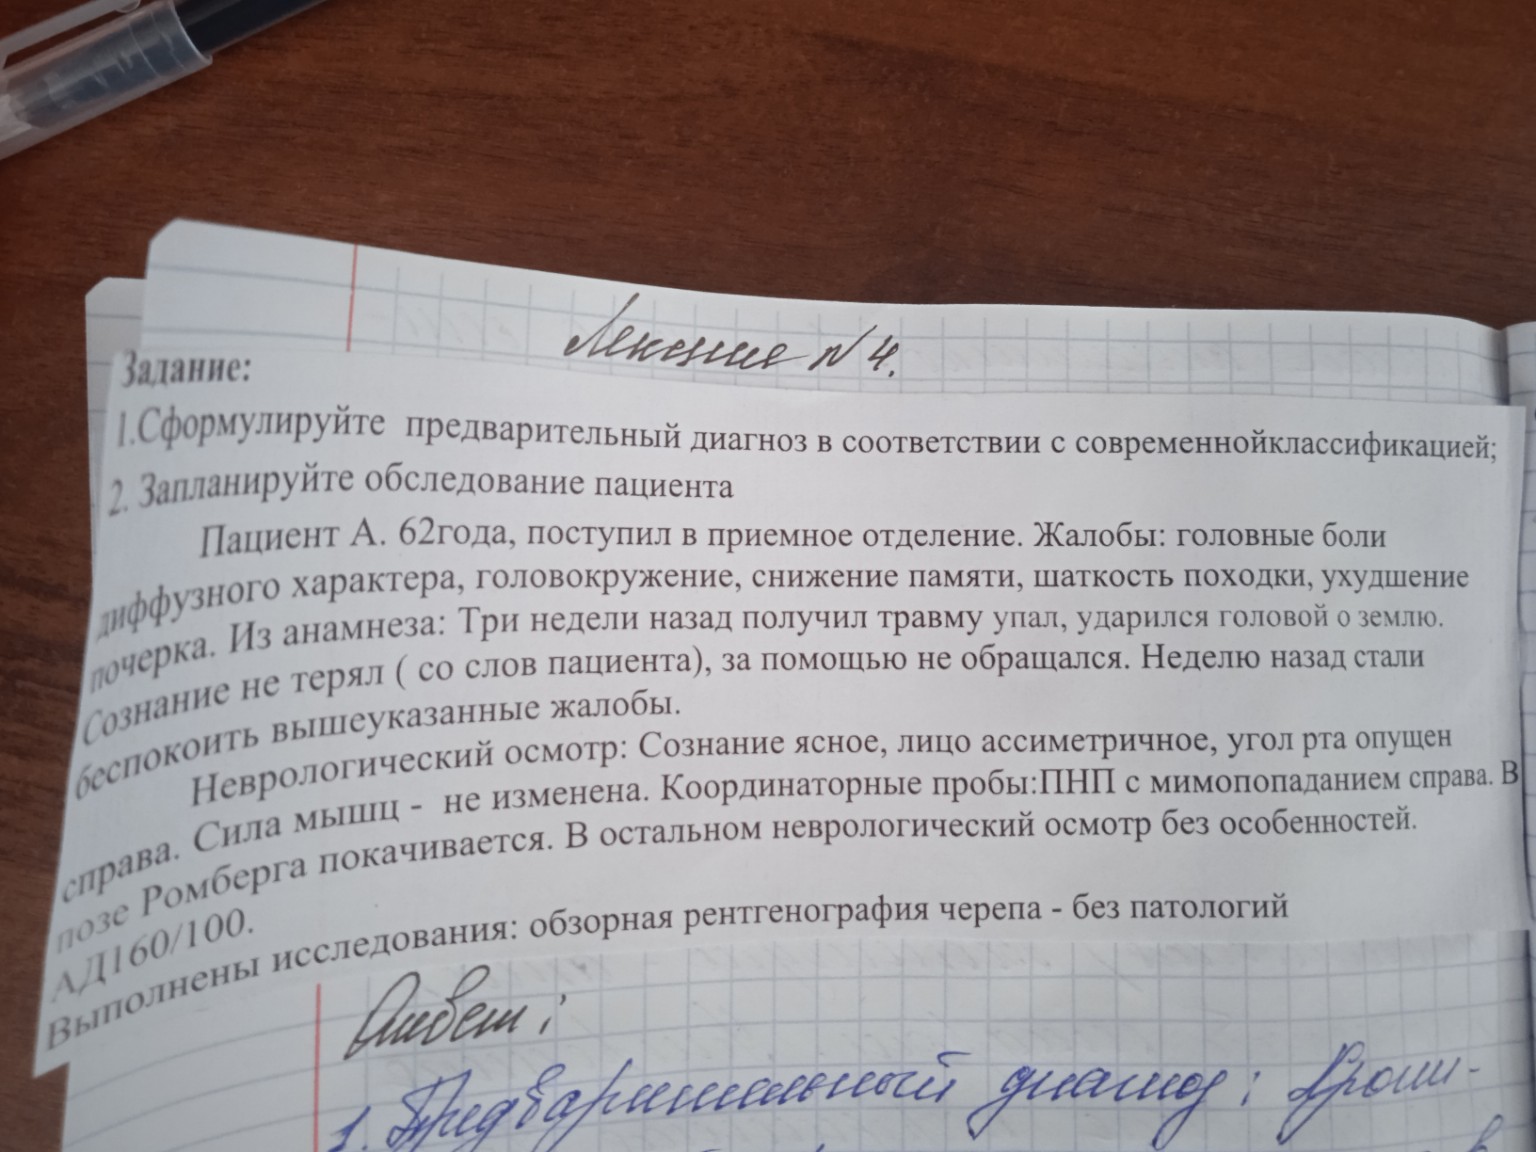 Лекция N 4.
Задание:
1.Сформулируйте предварительный диагноз в соответствии с современнойклассификацией;
2. Запланируйте обследование пациента
Пациент А. 62года, поступил в приемное отделение. Жалобы: головные боли
диффузного характера, головокружение, снижение памяти, шаткость походки, ухудшение
почерка. Из анамнеза: Три недели назад получил травму упал, ударился головой о землю.
Сознание не терял ( со слов пациента), за помощью не обращался. Неделю назад стали
беспокоить вышеуказанные жалобы.
Неврологический осмотр: Сознание ясное, лицо ассиметричное, угол рта опущен
справа. Сила мышц - не изменена. Координаторные пробы:ПНП с мимопопаданием справа. В
позе Ромберга покачивается. В остальном неврологический осмотр без особенностей.
АД160/100.
Выполнены исследования: обзорная рентгенография черепа - без патологий
Ответ:
1. Предварительный диагноз: Хрони-